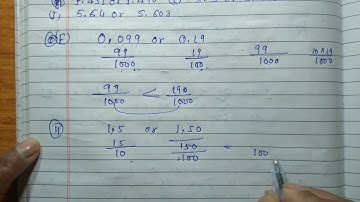 5.64 or 5.603
0.099 or 0.19
99/1000 19/100 99/1000 10×19/1000
99/1000 < 190/1000
1.5 or 1.50
15/10 150/100 = 100